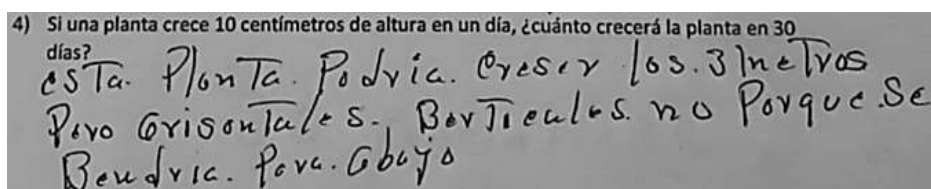 4) Si una planta crece 10 centímetros de altura en un día, ¿cuánto crecerá la planta en 30
días?
esTa. PlanTa. Podria. Creser los. 3 meTros
Pero Orisontales. BerTicales. no Porque. Se
Bendria. Para. abajo